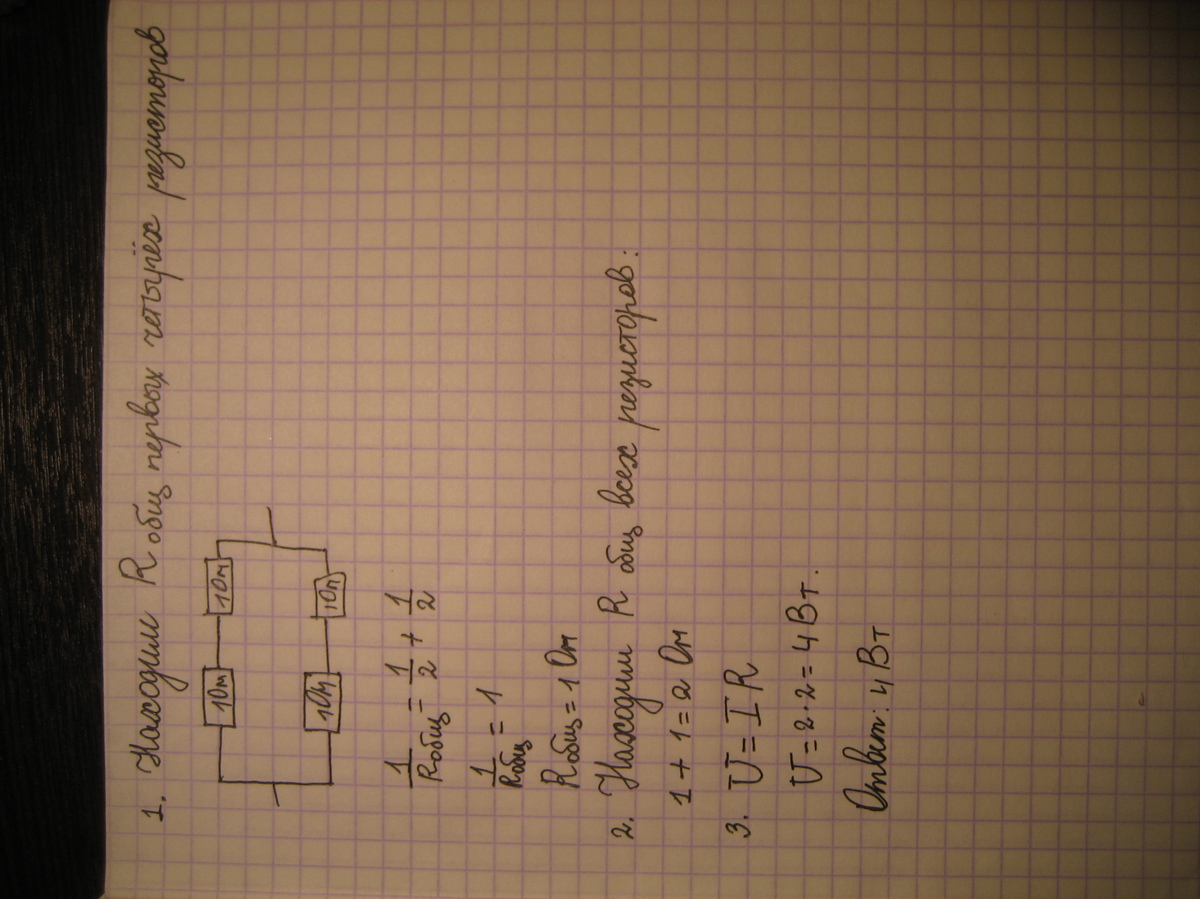 1. Находим R общ первых четырёх резисторов
1Ом 1Ом
1Ом 1Ом
1/Rобщ = 1/2 + 1/2
1/Rобщ = 1
Rобщ = 1 Ом
2. Находим R общ всех резисторов:
1 + 1 = 2 Ом
3. U = I R
U = 2 · 2 = 4 Вт.
Ответ: 4 Вт